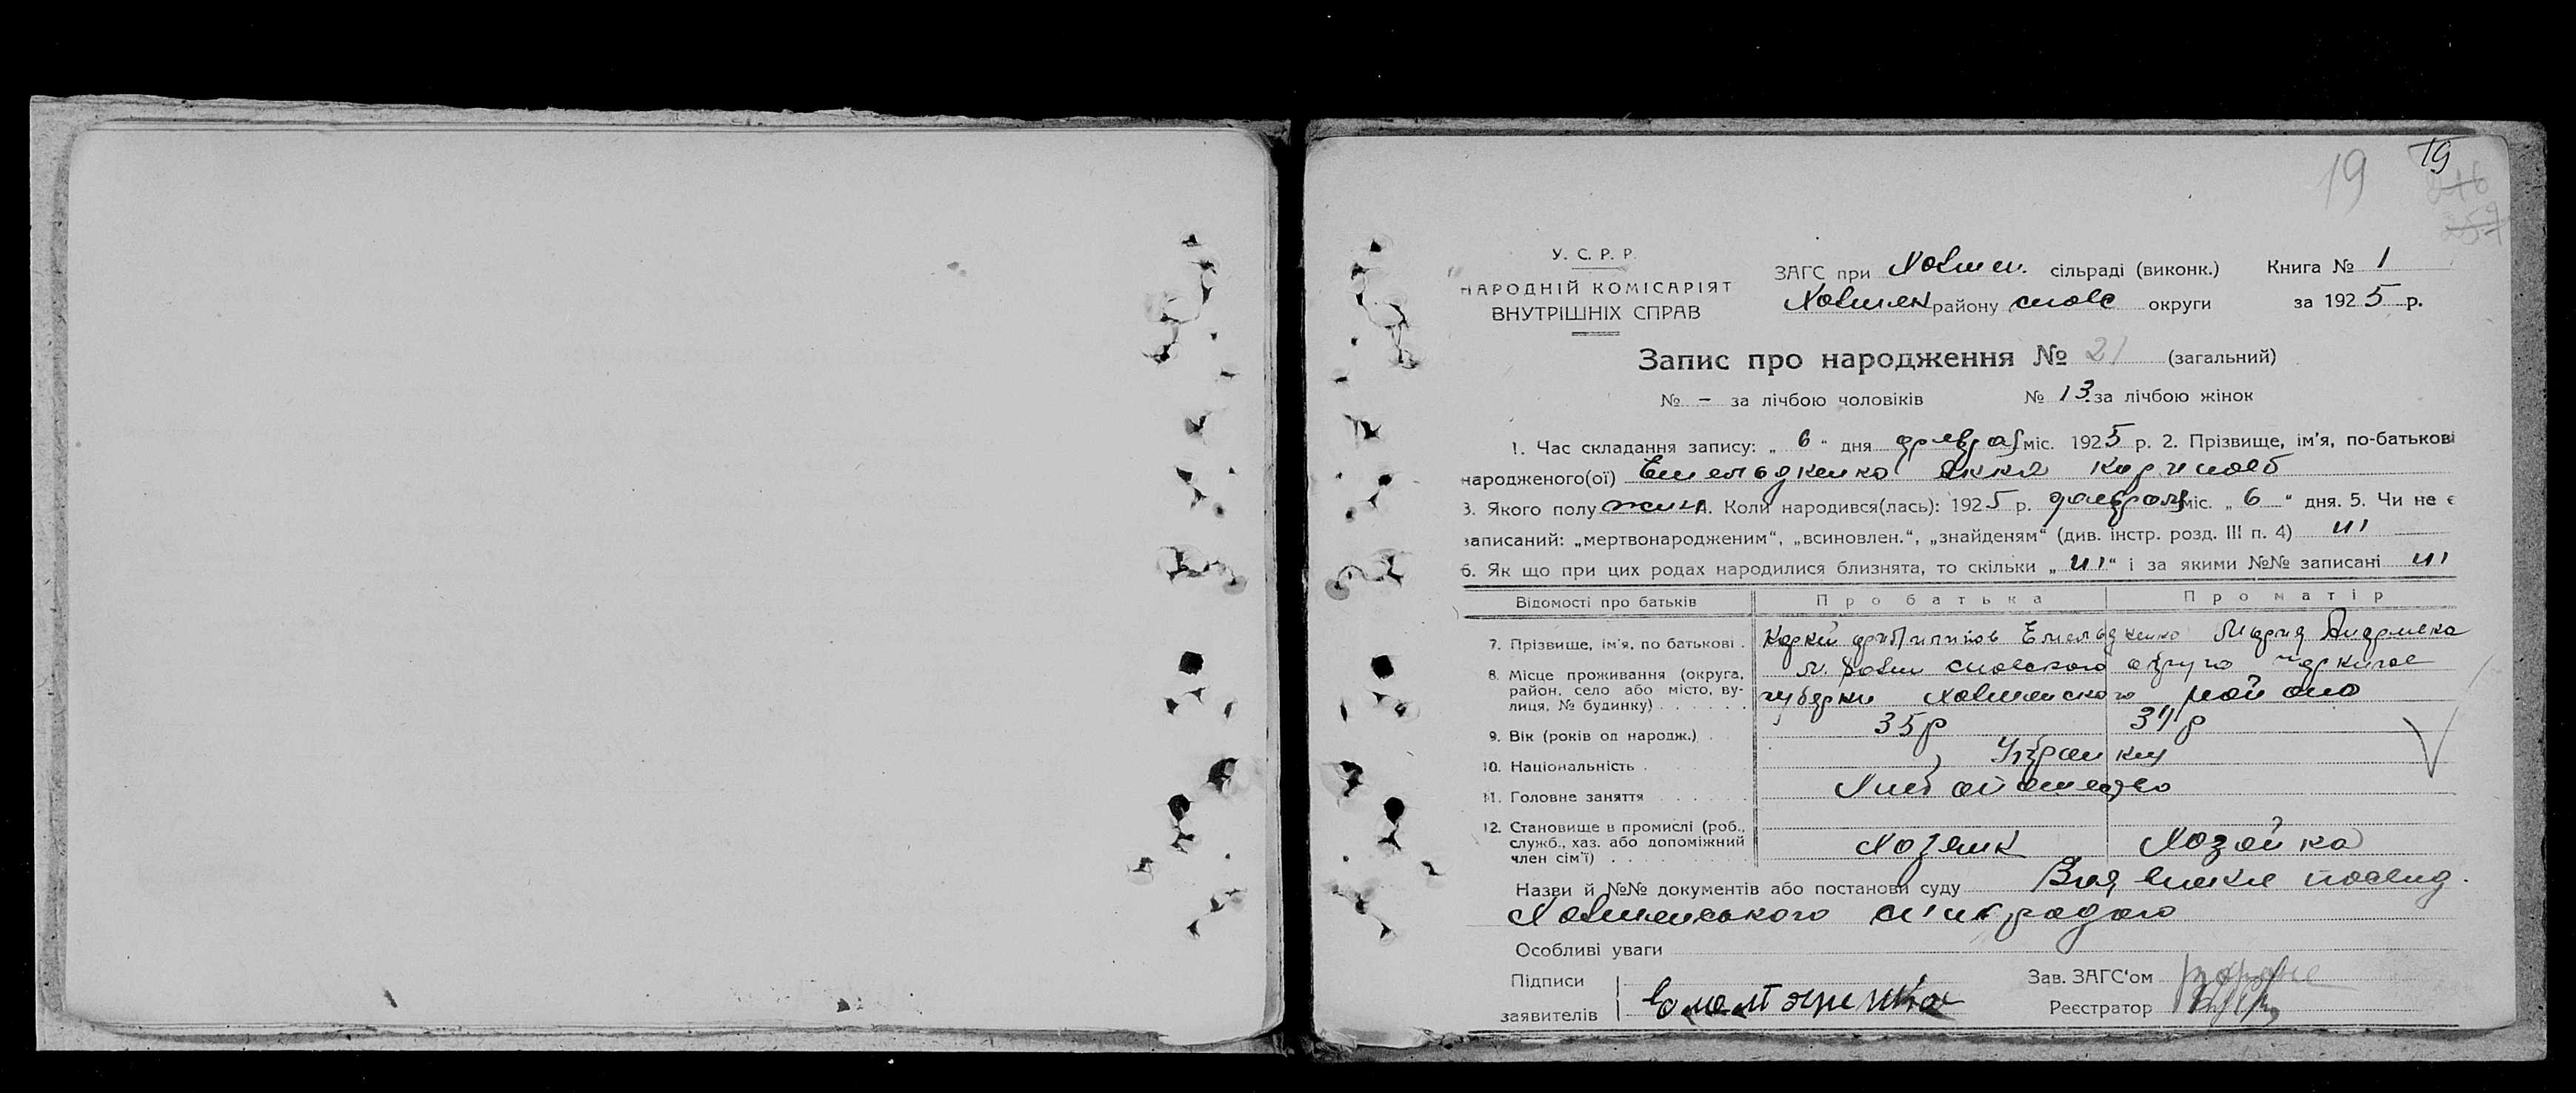 19 19
246
257
У. С. Р. Р.
НАРОДНІЙ КОМІСАРІЯТ
ВНУТРІШНІХ СПРАВ
ЗАГС при Холмен. сільраді (виконк.) Книга № 1
Холмен району снове округи за 1925 р.
Запис про народження № 21 (загальний)
№ – за лічбою чоловіків № 13 за лічбою жінок
1. Час складання запису: „ 6 “ дня феврал міс. 1925 р. 2. Прізвище, ім'я, по-батькові
народженого(ої) Емельяненко Анна
3. Якого полу жин 4. Коли народився(лась): 1925 р. февраля міс. „ 6 “ дня. 5. Чи не є
записаний: „мертвонародженим“, „всиновлен.“, „знайденям“ (див. інстр. розд. III п. 4) ні
6. Як що при цих родах народилися близнята, то скільки „ ні “ і за якими №№ записані ні
Відомості про батьків Про батька Про матір
7. Прізвище, ім'я, по батькові . Емельяненко Мария
8. Місце проживання (округа, район, село або місто, вулиця, № будинку) . . . . . . м. Холм сновского округо
губерни Холменского района
9. Вік (років од народж.) . 35р 34р
10. Національність . Украинци
11. Головне заняття . . . . . . Хлібопашество
12. Становище в промислі (роб., служб., хаз. або допоміжний член сім'ї) . . . . Хозяин Хозяйка
Назви й №№ документів або постанови суду посвид.
Холменського сільради
Особливі уваги
Підписи Зав. ЗАГС'ом
заявителів Реєстратор